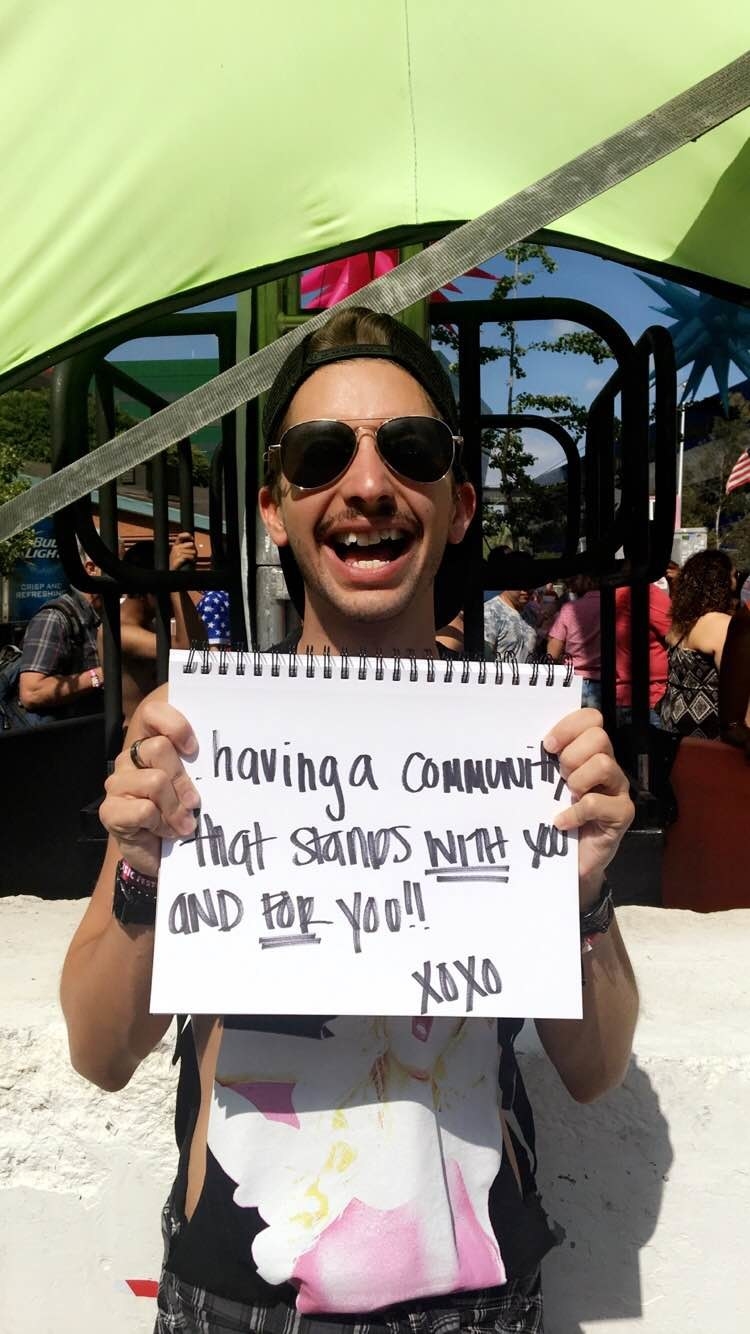 BUD
LIGHT
CRISP AND
REFRESHING
.having a community
that stands WITH you
AND FOR YOU!!
XOXO